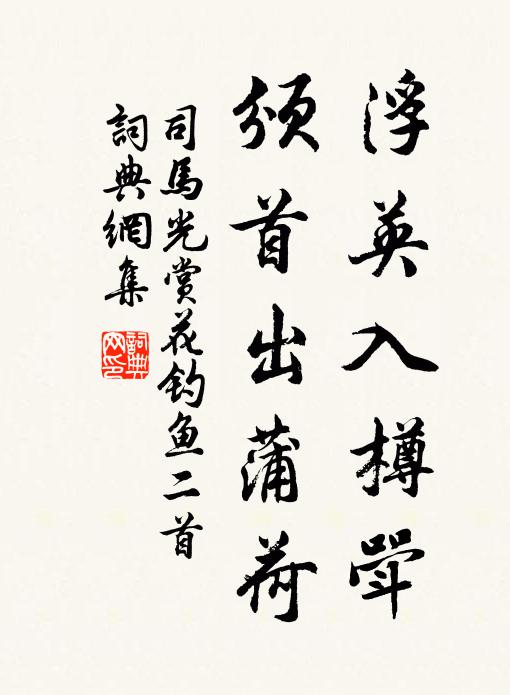 浮英入樽斝
頒首出蒲荷
司馬光賞花釣魚二首
詞典網集
詞典網印